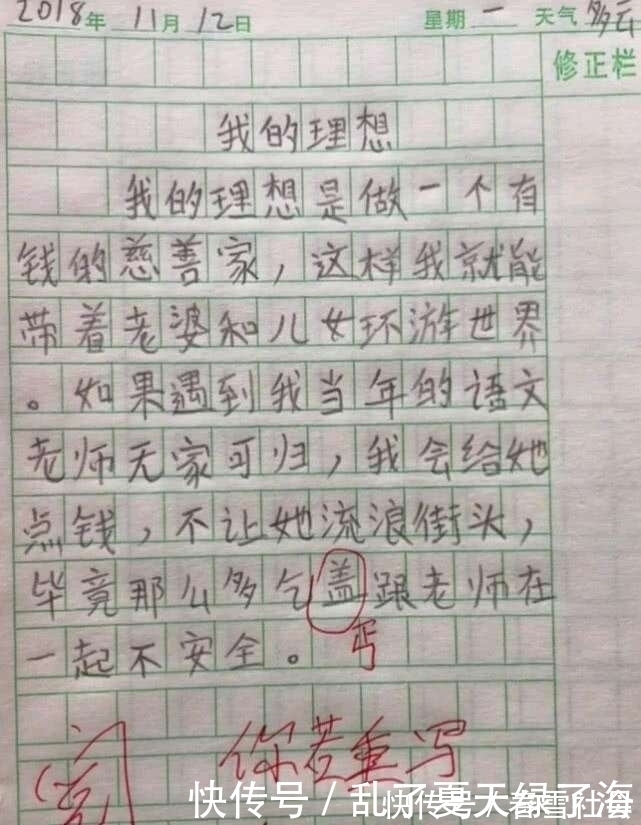 2018年 11月 12日 星期一 天气 多云
修正栏
我的理想
我的理想是做一个有
钱的慈善家，这样我就能
带着老婆和儿女环游世界
。如果遇到我当年的语文
老师无家可归，我会给她
点钱，不让她流浪街头，
毕竟那么多乞盖跟老师在
一起不安全。
丐
重写
快传号 / 乱了夏天绿了海